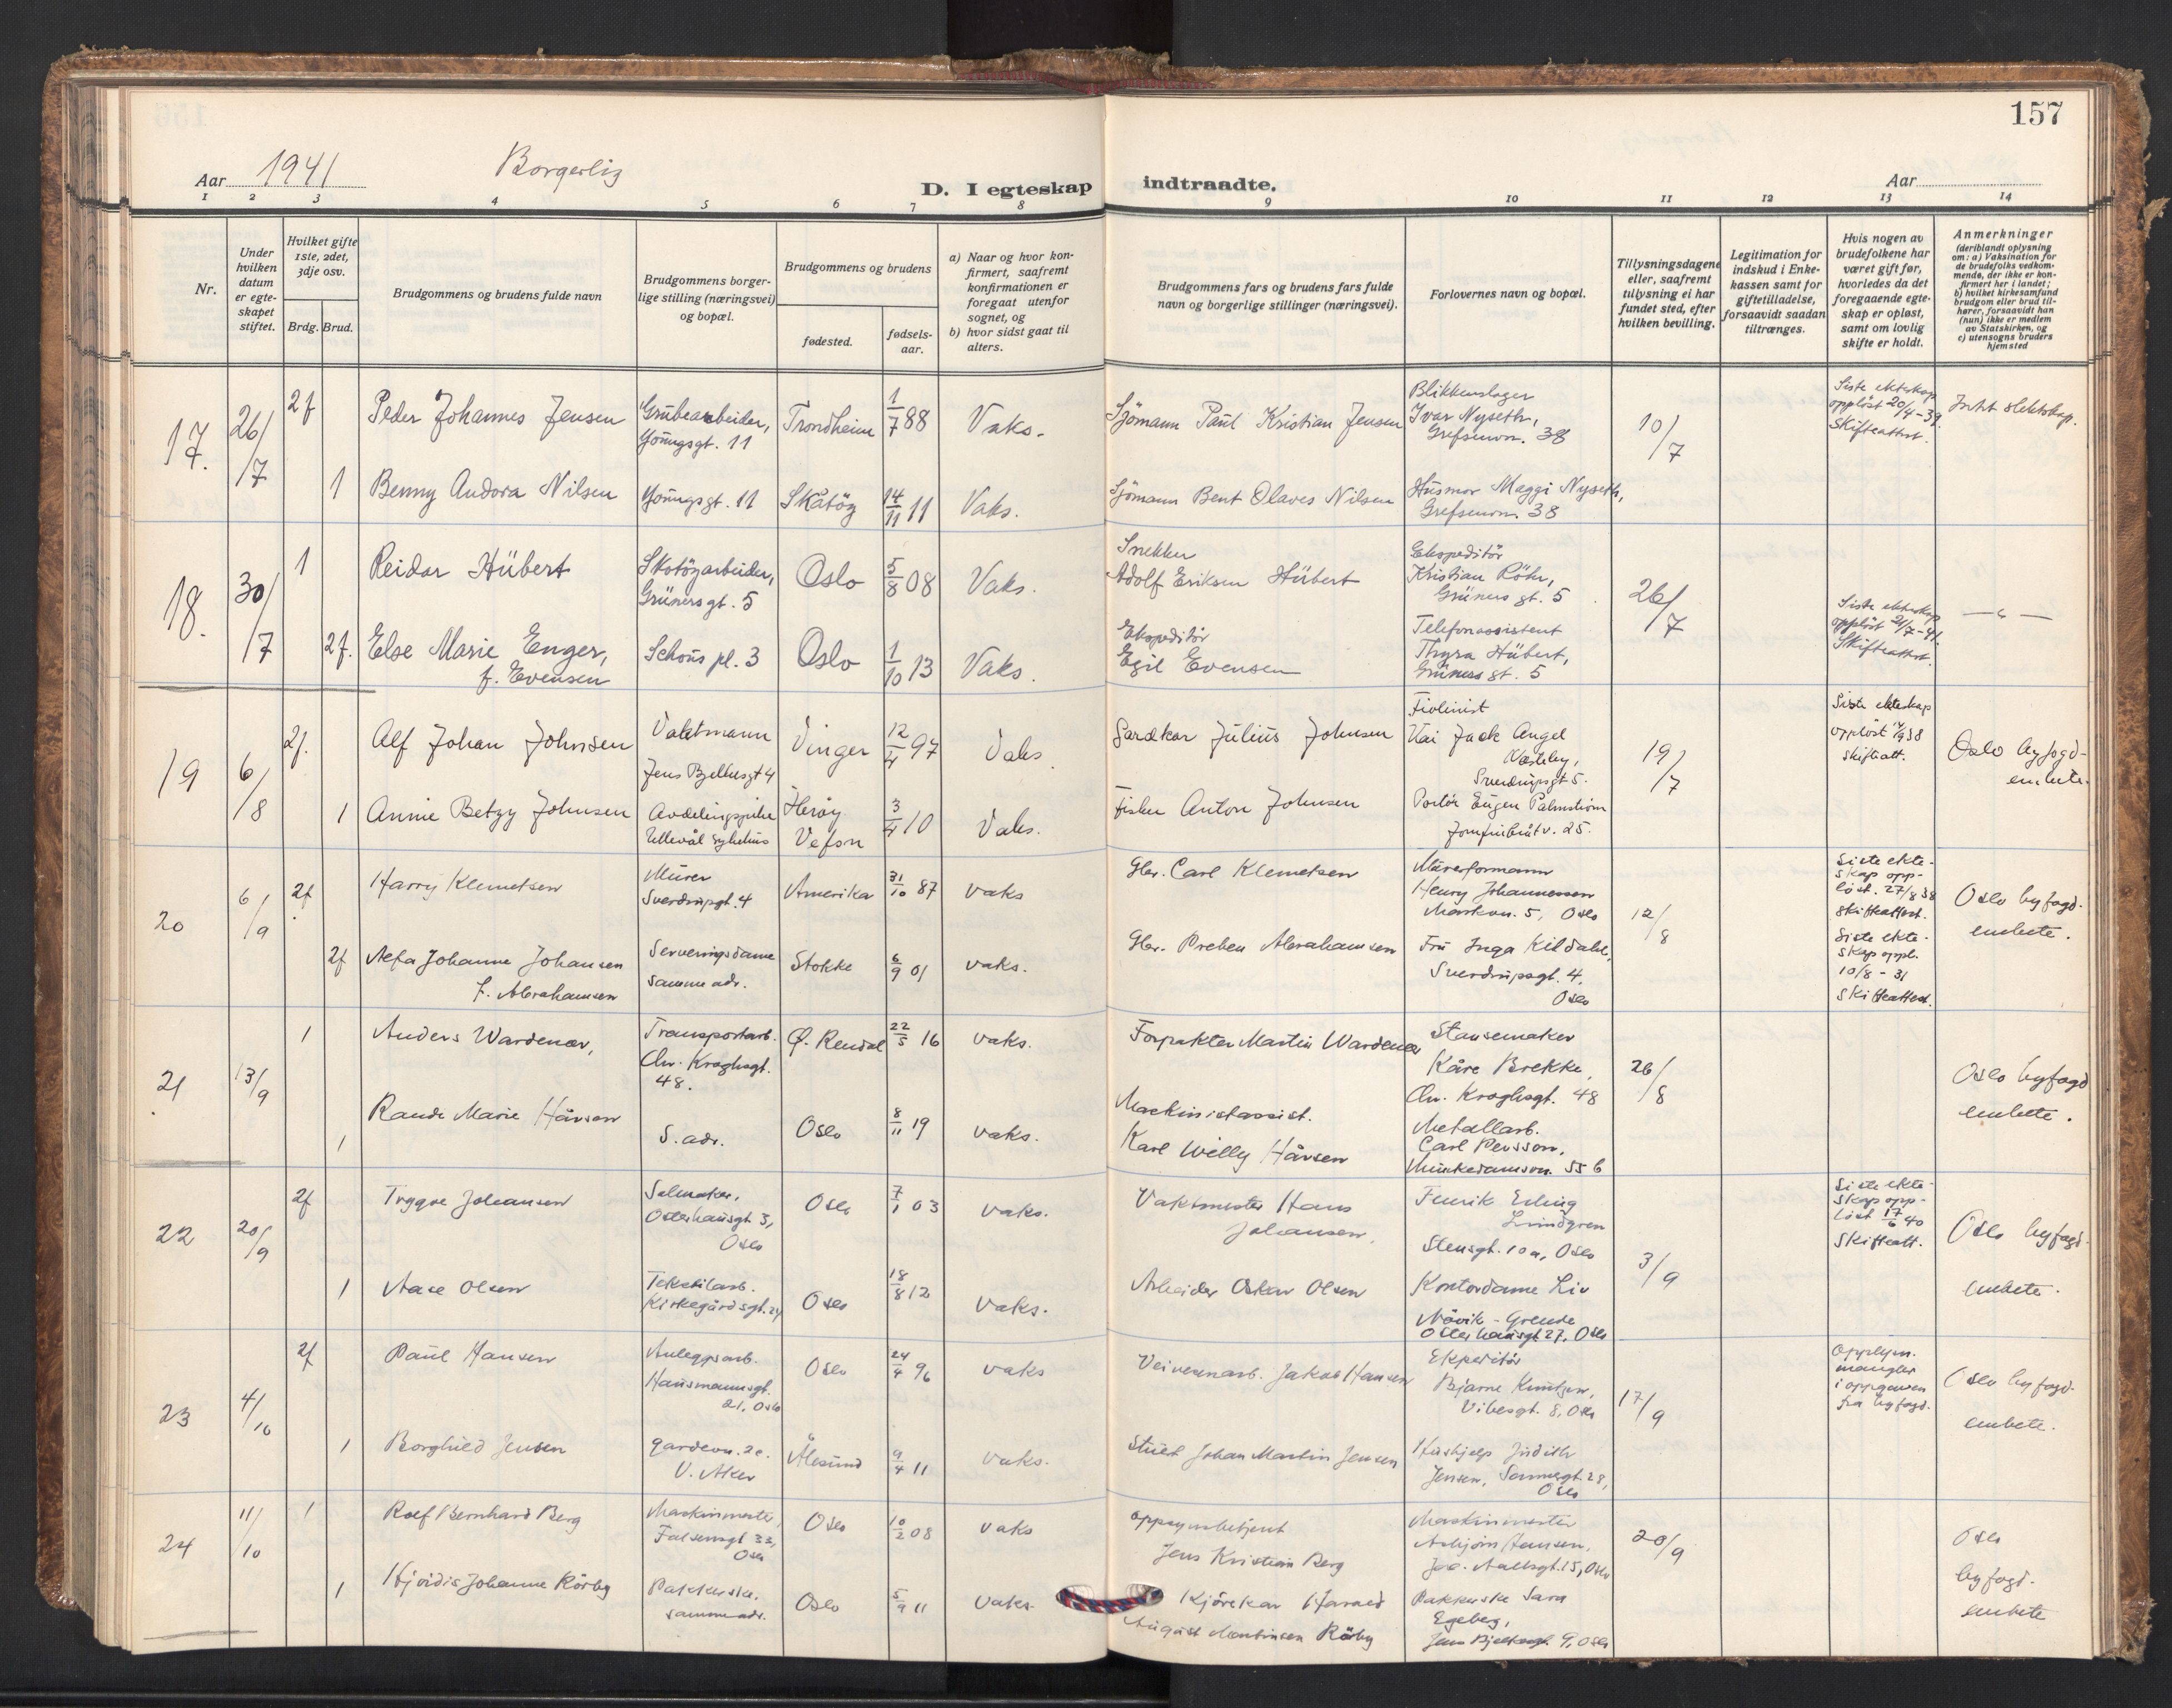 157
Aar 1941
Borgerlig
D. I egteskap indtraadte.
Aar
1 2 3 4 5 6 7 8 9 10 11 12 13 14
Nr.
Under
hvilken
datum
er egte-
skapet
stiftet.
Hvilket gifte
1ste, 2det,
3dje osv.
Brdg. Brud.
Brudgommens og brudens fulde navn
Brudgommens borger-
lige stilling (næringsvei)
og bopæl.
Brudgommens og brudens
fødested.
fødsels-
aar.
a) Naar og hvor kon-
firmert, saafremt
konfirmationen er
foregaat utenfor
sognet, og
b) hvor sidst gaat til
alters.
Brudgommens fars og brudens fars fulde
navn og borgerlige stillinger (næringsvei).
Forlovernes navn og bopæl.
Tillysningsdagene
eller, saafremt
tillysning ei har
fundet sted, efter
hvilken bevilling.
Legitimation for
indskud i Enke-
kassen samt for
giftetilladelse,
forsaavidt saadan
tiltrænges.
Hvis nogen av
brudefolkene har
været gift før,
hvorledes da det
foregaaende egte-
skap er opløst,
samt om lovlig
skifte er holdt.
Anmerkninger
(deriblandt oplysning
om: a) Vaksination for
de brudefolks vedkom-
mende, der ikke er kon-
firmert her i landet;
b) hvilket kirkesamfund
brudgom eller brud til-
hører, forsaavidt han
(hun) ikke er medlem
av Statskirken, og
c) utensogns bruders
hjemsted
17.
26/7
2f
Peder Johannes Jensen
Grubearbeider,
Youngsgt. 11
Trondheim
1/7 88
Vaks.
Sjömann Paul Kristian Jensen
Blikkenslager
Ivar Nyseth,
Grefsenvn. 38
10/7
Siste ekteskap
opplöst 20/4-39.
Skifteattest.
Intet slektskap.
1
Benny Andora Nilsen
Youngsgt. 11
Skåtöy
14/11 11
Vaks.
Sjömann Bent Olaves Nilsen
Husmor Maggi Nyseth,
Grefsenvn. 38
18.
30/7
1
Reidar Hübert
Skotöyarbeider,
Grünersgt. 5
Oslo
5/8 08
Vaks.
Snekker
Adolf Eriksen Hübert
Ekspeditör
Kristian Röhr,
Grüners gt. 5
26/7
2f.
Else Marie Enger,
f. Evensen
Schous pl. 3
Oslo
1/10 13
Vaks.
Ekspeditör
Egil Evensen
Telefonassistent
Thyra Hübert,
Grüners gt. 5
Siste ekteskap
opplöst 21/7-41.
Skifteattest.
— " —
19
6/8
2f.
Alf Johan Johnsen
Vaktmann
Jens Bjelkesgt 4
Vinger
12/4 97
Vaks.
Gardkar Julius Johnsen
Fiolinist
Kai Jack Angel
Næsteby,
Sverdrupsgt 5.
19/7
Siste ekteskap
opplöst
skifteatt.
Oslo byfogd-
embete.
1
Annie Betzy Johnsen
Avdelingspike
Ullevål sykehus
Heröy
Vefsn
3/4 10
Vaks.
Fisker Anton Johnsen
Portör Eugen Palmstrøm
Jomfrubråtv. 25.
20
6/9
2f
Harry Klemetsen
Murer
Sverdrupgt. 4
Amerika
31/10 87
vaks
Gbr. Carl Klemetsen
Murerformann
Henry Johannessen
5, Oslo
12/8
Siste ekte-
skap opp-
löst. 27/8 38
skifteattest.
Oslo byfogd.
embete.
2f
Alfa Johanne Johansen
f. Abrahamsen
Serveringsdame
samme adr.
Stokke
6/9 01
vaks.
Gbr. Preben Abrahamsen
Fru Inga Kildahl,
Sverdrupsgt. 4,
Oslo
Siste ekte-
skap oppl.
10/8 - 31
skifteattest.
21
13/9
1
Anders Wardenær,
Transportarb.
Chr. Kroghsgt.
48.
Ø. Rendal
22/5 16
vaks.
Forpakter Martin Wardenær
Stansemaker
Kåre Brekke,
Chr. Kroghsgt. 48
26/8
Oslo byfogd
embete.
1
Rande Marie Håvsen
S. adr.
Oslo
8/11 19
vaks.
Maskinistassist.
Karl Willy Håvsen
Metallarb.
Carl Persson,
Munkedamsvn. 55 b
22
20/9
2f
Trygve Johansen
Salmaker,
Osterhausgt. 3,
Oslo
Oslo
7/1 03
vaks.
Vaktmester Hans
Johansen.
Fenrik Erling
Lundgren
Stensgt. 10a, Oslo
3/9
Siste ekte-
skap opp-
löst 17/6 40
Skifteatt.
Oslo byfogd.
embete.
1
Aase Olsen
Tekstilarb.
Kirkegårdsgt. 24
Oslo
18/8 12
vaks.
Arbeider Oskar Olsen
Kontordame Liv
Nåvik-Grende
Osterhausgt 27, Oslo
23
4/10
2f
Paul Hansen
Anleggsarb.
Hausmannsgt.
21, Oslo
Oslo
24/4 96
vaks
Veivesenarb. Jakob Hansen
Ekspeditör
Bjarne Knutzen,
Vibesgt. 8, Oslo
17/9
Opplysn.
mangler
i oppgaven
fra byfogd.
Oslo byfogd.
embete.
1
Borghild Jensen
Gardevn. 2c.
V. Aker
Ålesund
9/4 11
vaks.
Stuer Johan Martin Jensen
Hushjelp Judith
Jensen, Sannergt. 28,
Oslo
24
11/10
1
Rolf Bernhard Berg
Maskinmester,
Falsensgt 33,
Oslo
Oslo
10/2 08
vaks
oppsynsbetjent
Jens Kristian Berg
Maskinmester
Asbjörn Hansen,
Jac. Aallsgt. 15, Oslo
20/9
Oslo
byfogd.
embete
1
Hjördis Johanne Rörby
Pakkerske.
samme adr.
Oslo
5/9 11
vaks.
Kjörekar Harald
August Martinsen Rörby
Pakkerske Sara
Egeberg,
Jens Bjelkesgt. 9, Oslo